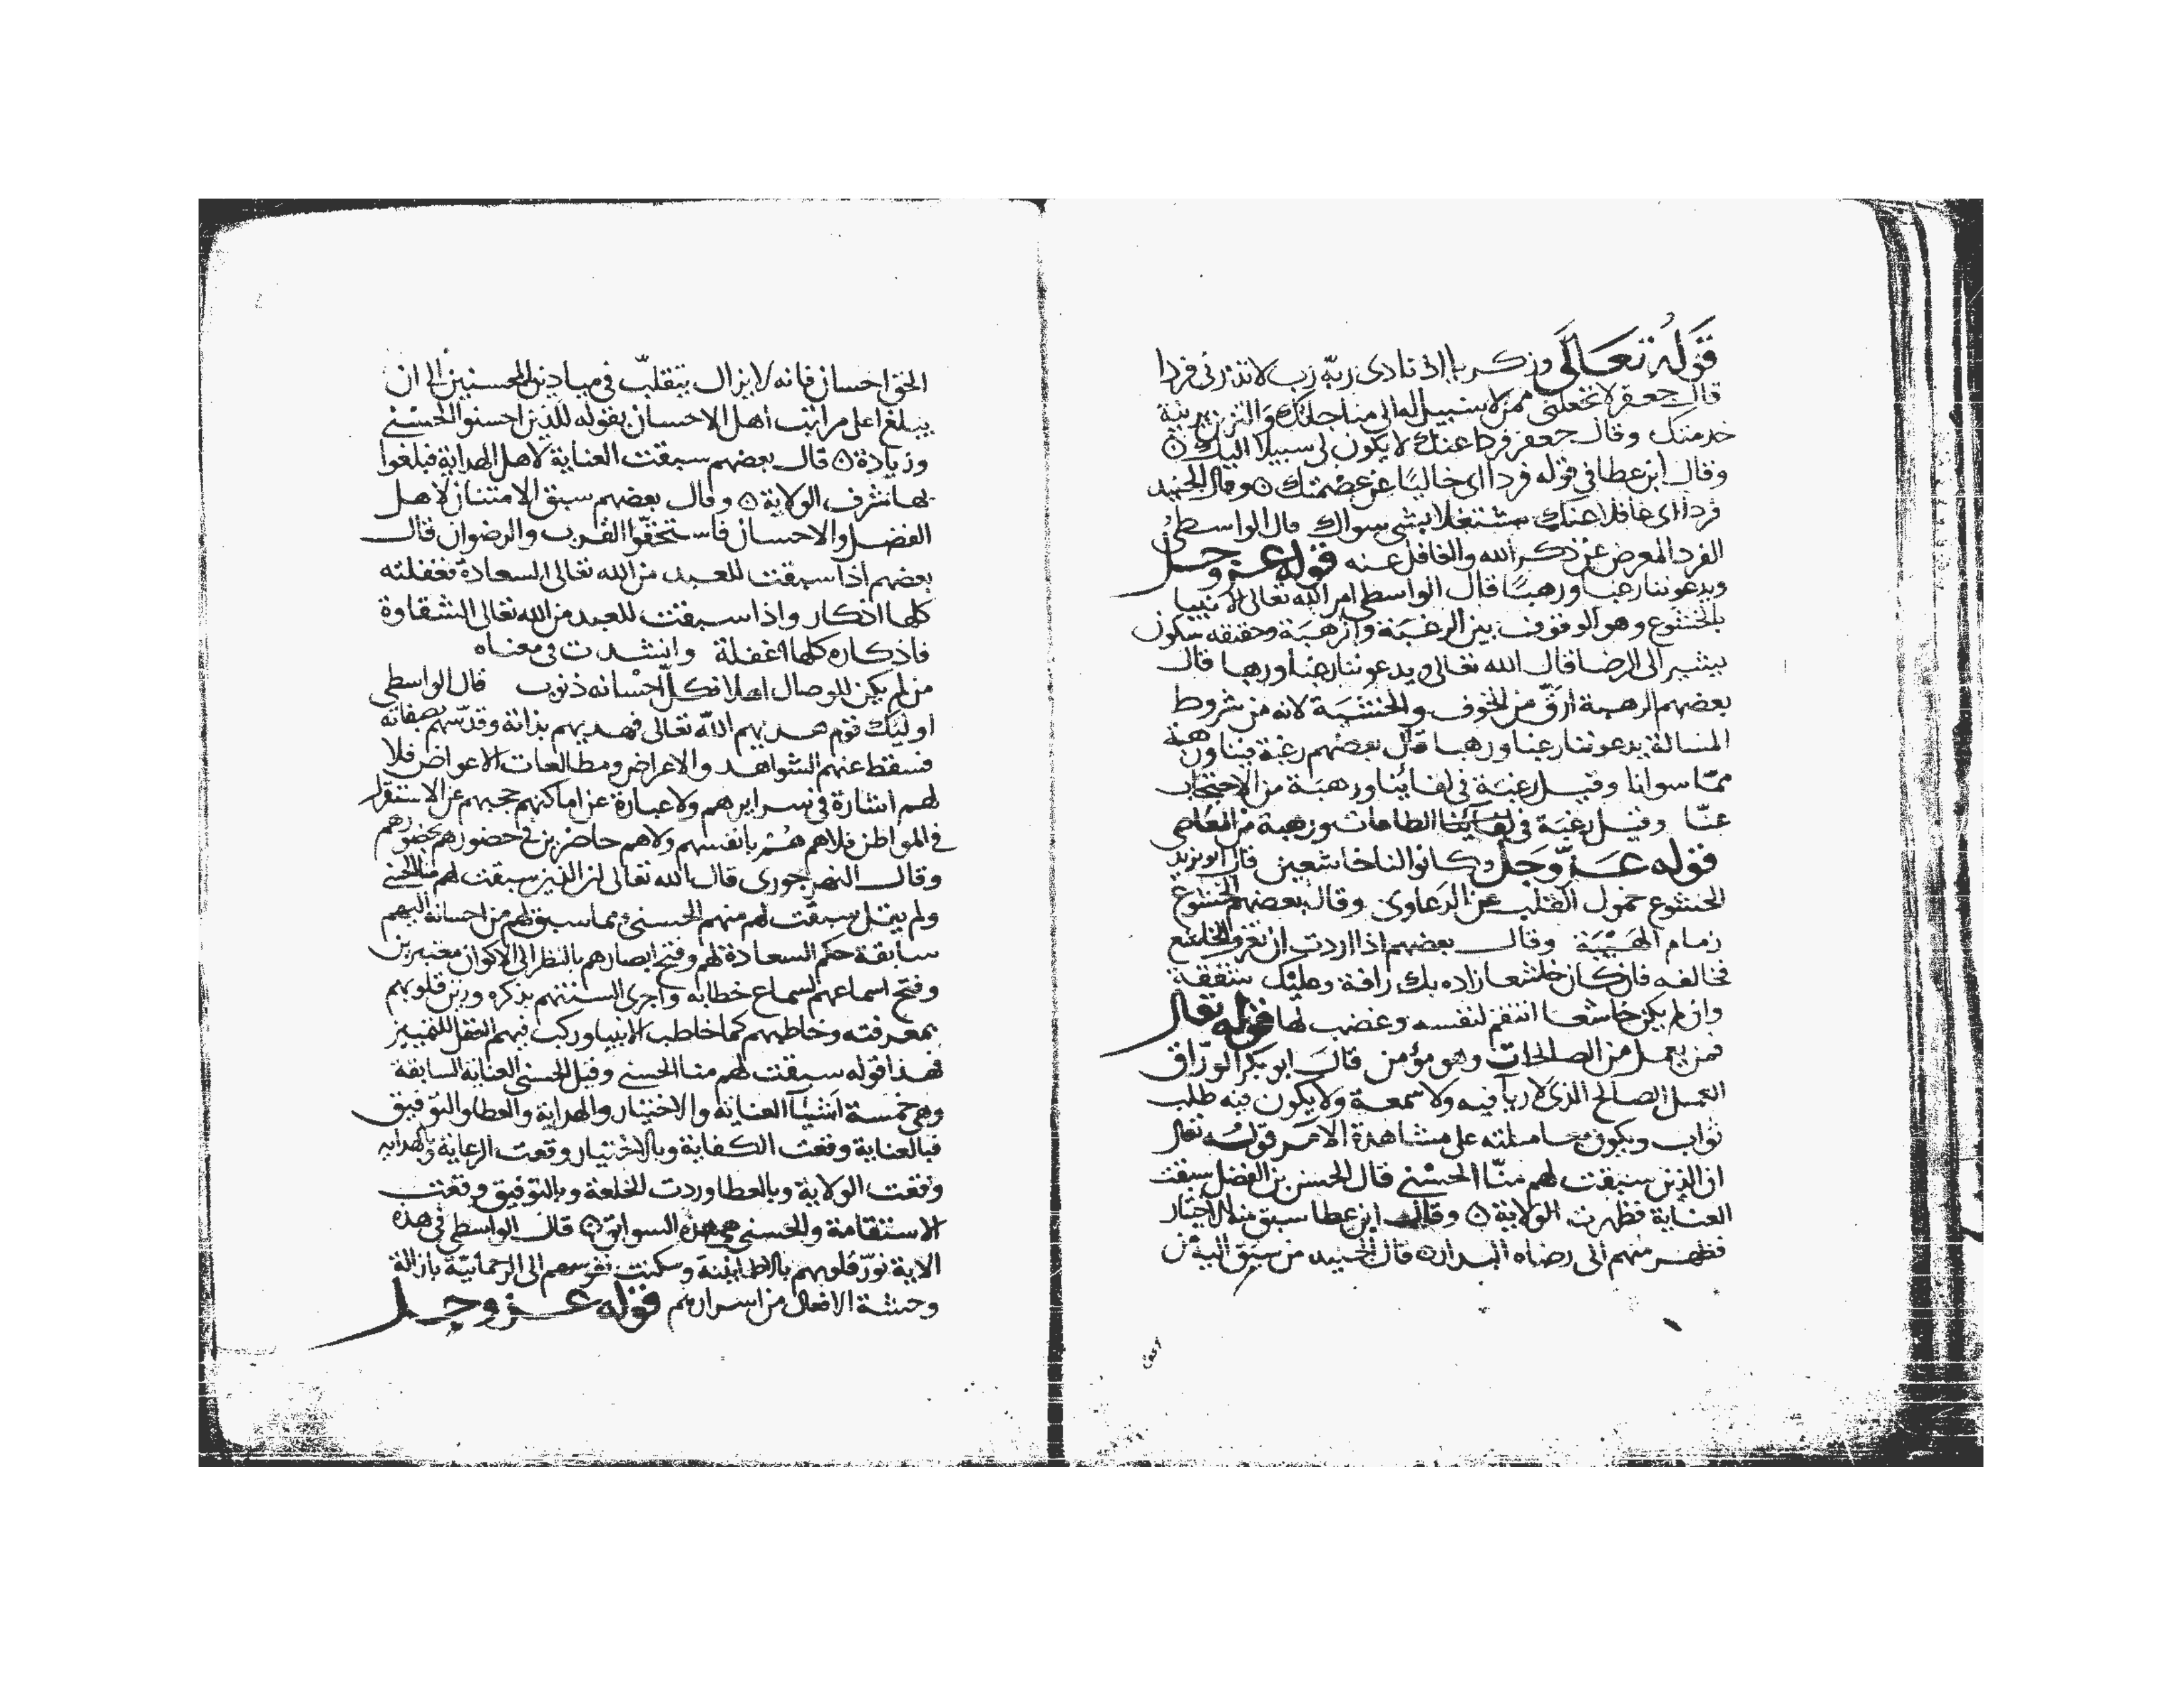 قوله تعالى وزكريا اذ نادى ربه رب لا تذرنى فردا
قال جعفر لا تجعلنى ممن لا سبيل له الى مناجاتك والتزين بزينة
خدمتك وقال جعفر فردا عنك لا يكون لى سبيلا اليك
وقال ابن عطا فى قوله فردا اى خاليا عن عصمتك وقال الجنيد
فردا اى غافلا عنك مشتغلا بشى سواك قال الواسطى
الفرد المعرض عن ذكر الله والغافل عنه قوله عز وجل
ويدعوننا رغبا ورهبا قال الواسطى امر الله تعالى الانبيا
بالخشوع وهو الوقوف بين الرغبة والرهبة وحقيقه سكون
يشير الى الرضا قال الله تعالى ويدعوننا رغبا ورهبا قال
بعضهم الرهبة ارق من الخوف والخشية لانه من شروط
المسالة يدعوننا رغبا ورهبا قال بعضهم رغبة فينا ورهبة
مما سوانا وقيل رغبة فى لقائنا ورهبة من الاحتجاب
عنا وقيل رغبة فى الطاعات ورهبة من المعاصى
قوله عز وجل وكانوا لنا خاشعين قال ابو يزيد
الخشوع خمول القلب عن الدعاوى وقال بعضهم الخشوع
زمام الهيبة وقال بعضهم اذا اردت ان تعرف الخاشع
فخالفه فان كان خاشعا زاده بك رافة وعليك شفقة
وان لم يكن خاشعا انتقم لنفسه وغضب لها قوله تعالى
فمن يعمل من الصالحات وهو مؤمن قال ابو بكر الوراق
العمل الصالح الذى لا ريآ فيه ولا سمعة ولا يكون فيه طلب
ثواب ويكون معاملته على مشاهدة الامر قوله تعالى
ان الذين سبقت لهم منا الحسنى قال الحسن بن الفضل سبقت
العناية فظهرت الولاية وقال ابن عطا سبق منه الاختيار
فظهر منهم الى رضاه البدار قال الجنيد من سبق اليه من
الحق احسان فانه لا يزال يتقلب فى ميادين المحسنين الى ان
يبلغ اعلى مراتب اهل الاحسان بقوله للذين احسنوا الحسنى
وزيادة قال بعضهم سبقت العناية لاهل الهداية فبلغوا
بها شرف الولاية وقال بعضهم سبق الامتنان لاهل
الفضل والاحسان فاستحقوا القرب والرضوان قال
بعضهم اذا سبقت للعبد من الله تعالى السعادة فغفلته
كلها اذكار واذا سبقت للعبد من الله تعالى الشقاوة
فاذكاره كلها غفلة وانشدت فى معناه
من لم يكن للوصال اهلا فكل احسانه ذنوب قال الواسطى
اوليك قوم هديهم الله تعالى فهديهم بذاته وقدسهم بصفاته
فسقط عنهم الشواهد والاعراض ومطالعات الاعواض فلا
لهم اشارة فى سرايرهم ولا عبارة عن اماكنهم حجبهم عن الاستقرار
فى المواطن فلا هم هم بانفسهم ولا هم حاضرين فى حضورهم بحضورهم
وقال النهرجورى قال الله تعالى ان الذين سبقت لهم منا الحسنى
ولم يقل سبقت لهم منهم الحسنى مما سبق لهم من احسانه اليهم
سابقة حكم السعادة لهم وفتح ابصارهم بالنظر الى الاكوان معتبرين
وفتح اسماعهم لسماع خطابه واجرى السنتهم بذكره وزين قلوبهم
بمعرفته وخاطبهم كما خاطب الانبيا وركب فيهم العقل للتمييز
فهذا قوله سبقت لهم منا الحسنى وقيل الحسنى العناية السابقة
وهى خمسة اشيآ العناية والاختيار والهداية والعطا والتوفيق
فبالعناية وقعت الكفاية وبالاختيار وقعت الرعاية وبالهدايه
وقعت الولاية وبالعطا وردت الخلعة وبالتوفيق وقعت
الاستقامة والحسنى هى هذه السوابق قال الواسطى فى هذه
الاية نور قلوبهم بالاطمانينة وسكنت نفوسهم الى الرحمانية بازالة
وحشة الافعال من اسرارهم قوله عز وجل